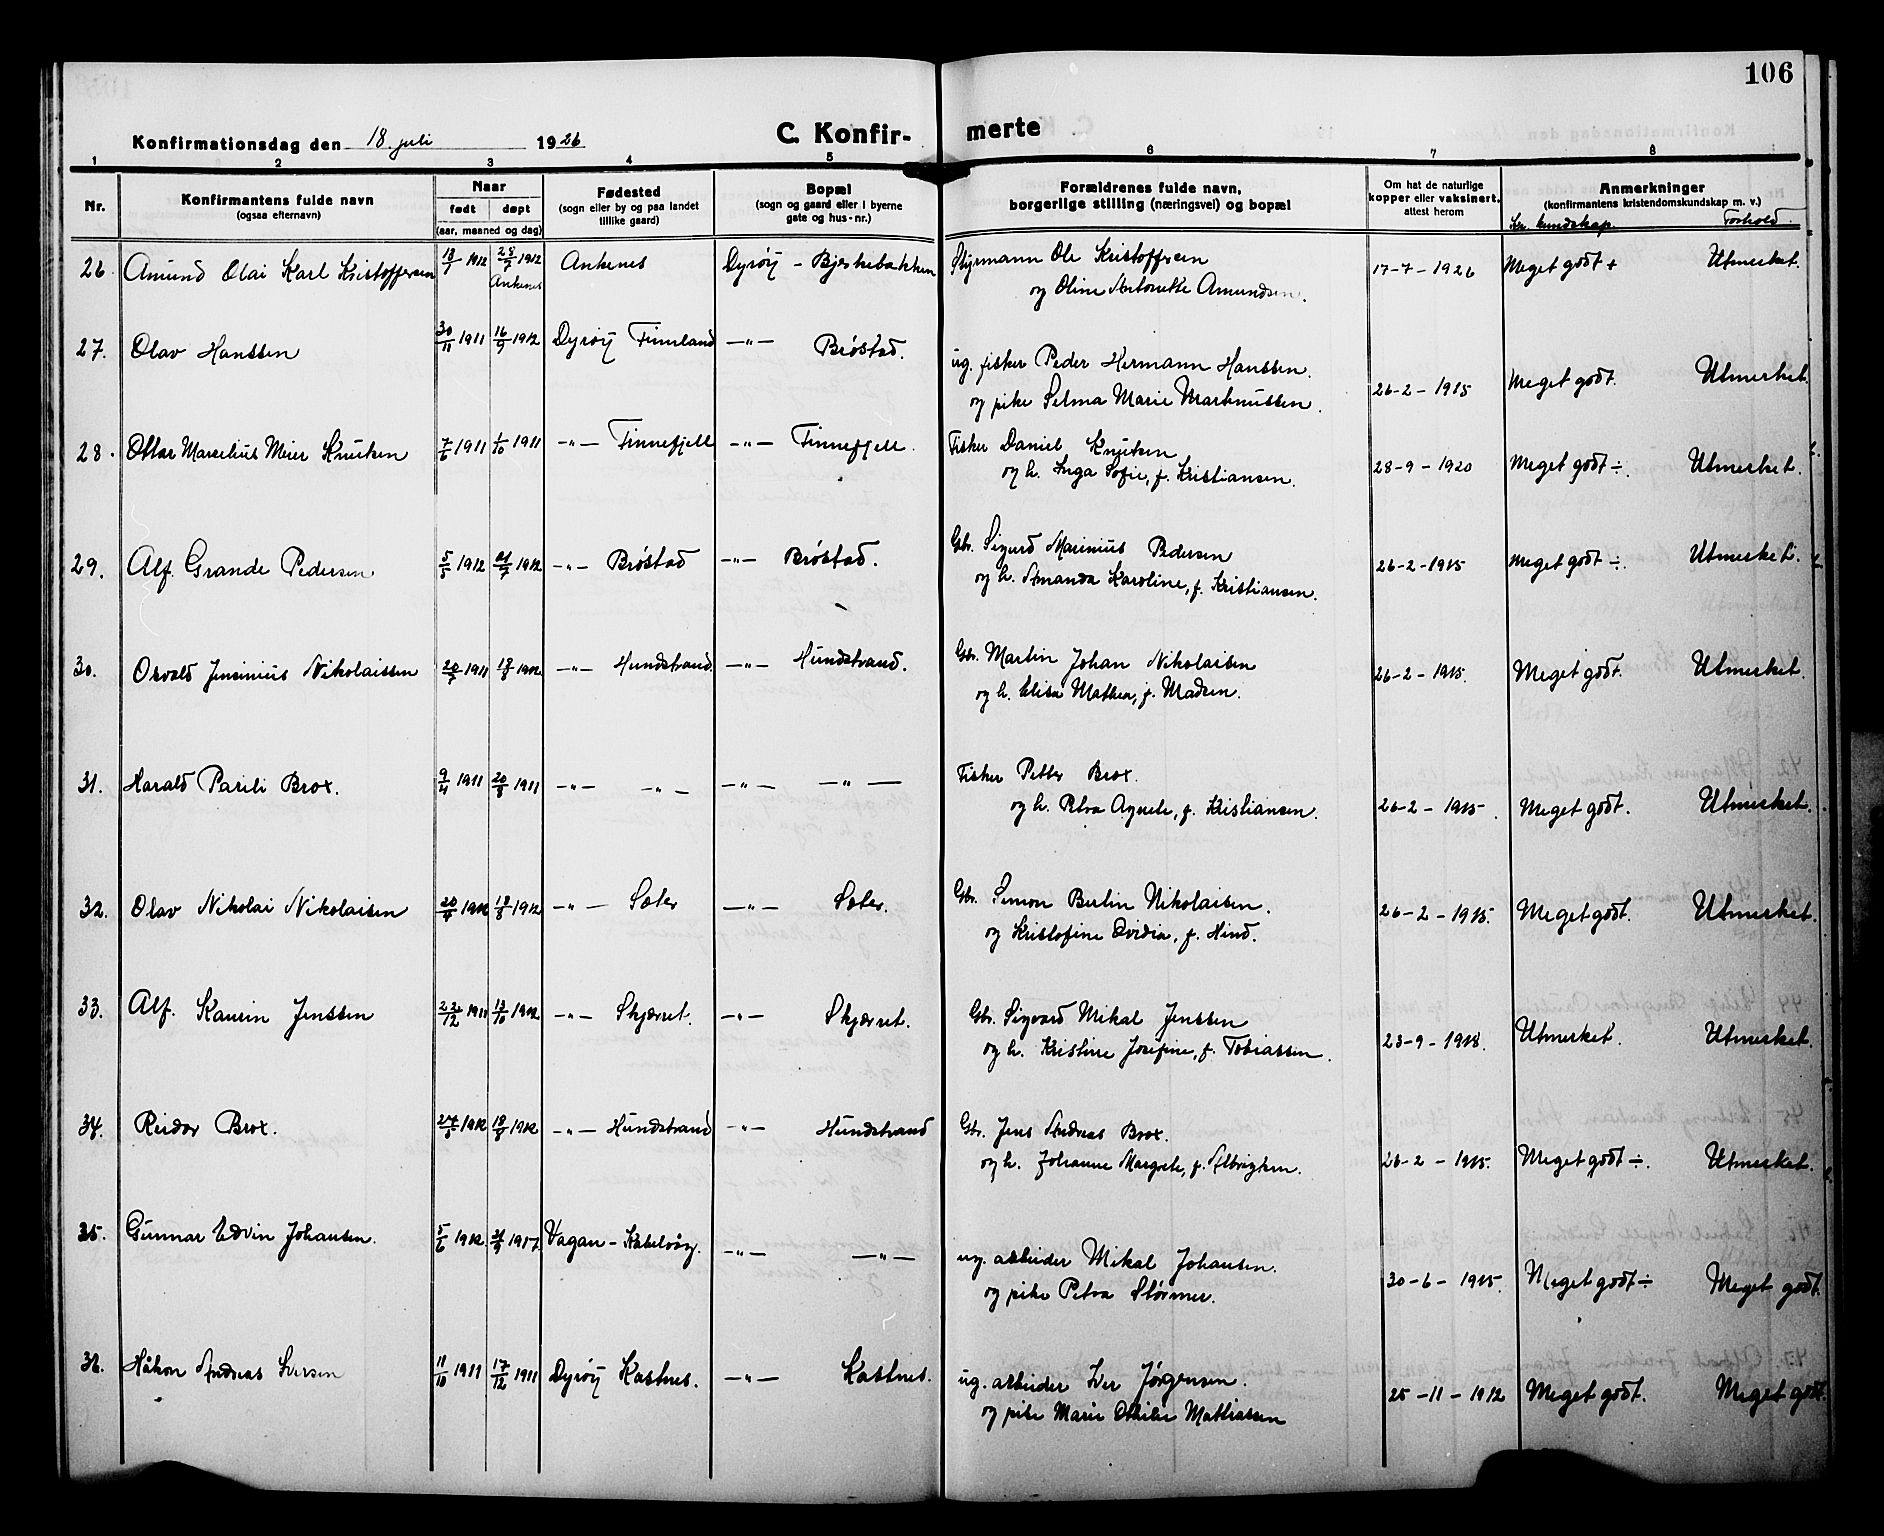 106
Konfirmationsdag den 18 juli 1926 C. Konfir- merte
1 2 3 4 5 6 7 8
Nr. Konfirmantens fulde navn (ogsaa efternavn) Naar født døpt (aar, maaned og dag) Fødested (sogn eller by og paa landet tillike gaard) Bopæl (sogn og gaard eller i byerne gate og hus-nr.) Forældrenes fulde navn, borgerlige stilling (næringsvei) og bopæl Om hat de naturlige kopper eller vaksinert, attest herom Anmerkninger (konfirmantens kristendomskundskap m. v.)
Kr. kundskap. Forhold.
26. Amund Olai Karl Kristoffersen 18/7 1912 28/7 1912 Ankenes Ankenes Dyrøy - Bjerkebakken Styrmann Ole Kristoffersen 17-7-1926 Meget godt + Utmerket.
og Oline Antonette Amundsen.
27. Olav Hanssen 30/11 1911 16/9 1912 Dyrøy Finnland -"- Brøstad. ug. fisker Peder Hermann Hanssen.
og pike Selma Marie Marknussen. 26-2-1915 Meget godt. Utmerket.
28. Ottar Marselius Meier Knutsen 7/6 1911 1/10 1911 -"- Finnefjell -"- Finnefjell. Fisker Daniel Knutsen
og h. Inga Sofie, f. Kristiansen. 28-9-1920 Meget godt ÷. Utmerket.
29. Alf Grande Pedersen 5/5 1912 21/7 1912 -"- Brøstad -"- Brøstad. Gbr. Sigurd Marinius Pedersen
og h. Amanda Karoline, f. Kristiansen. 26-2-1915 Meget godt ÷. Utmerket.
30. Osvald Jensinius Nikolaissen 1911 18/8 1912 -"- Hundstrand. -"- Hundstrand. Gbr. Martin Johan Nikolaisen
og h. Elisa Mathea, f. Madsen. 26-2-1915. Meget godt. Utmerket.
31. Harald Parili Brox. 9/4 1911 20/8 1911 -"- -"- -"- -"- Fisker Petter Brox.
og h. Petra Agnete, f. Kristiansen. 26-2-1915. Meget godt. Utmerket.
32. Olav Nikolai Nikolaisen 1912 18/8 1912 -"- Sæter -"- Sæter. Gbr. Simon Berlin Nikolaisen.
og Kristofine Ovidia, f. Hind. 26-2-1915. Meget godt. Utmerket.
33. Alf. Kaurin Jenssen 22/12 1911 13/10 1912 -"- Skjærvet. -"- Skjærvet. Gbr. Sigvard Mikal Jenssen
og h. Kristine Josefine, f. Tobiassen. 23-9-1918. Utmerket. Utmerket.
34. Reidar Brox. 1912 18/8 1912 -"- Hundstrand -"- Hundstrand Gbr. Jens Andreas Brox.
og h. Johanne Margrete, f. Albrigtsen. 26-2-1915. Meget godt ÷. Utmerket.
35. Gunnar Edvin Johansen. 5/6 1912. Vagan - Kabelvåg. -"- -"- ug. arbeider Mikal Johansen.
og pike Petra Størmer. 30-6-1915. Meget godt ÷ Meget godt.
36. Håkon Andreas Iversen 11/10 1911 17/12 1911 Dyrøy Kastnes. -"- Kastnes. ug. arbeider Iver Jørgensen.
og pike Marie Othilie Mathiassen 25-11-1912 Meget godt. Meget godt.